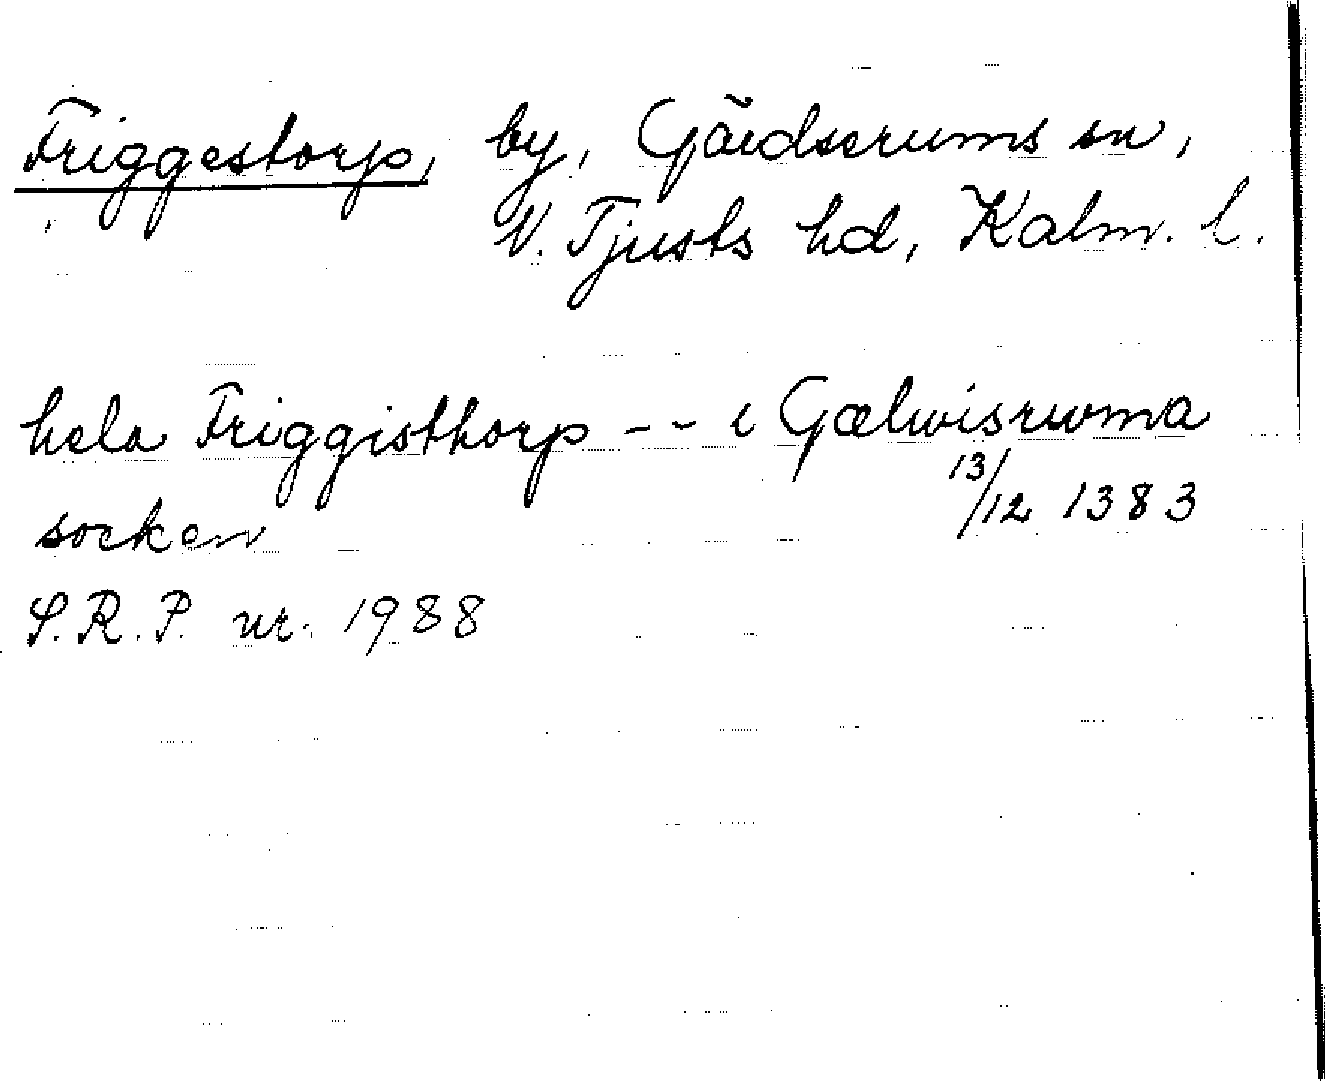 Friggestorp, by, Gärdserums sn,
N. Tjusts hd, Kalm. l.
hela Friggisthorp -- i Gælwisrwma
socken 13/12 1383
S.R.P. nr. 1988